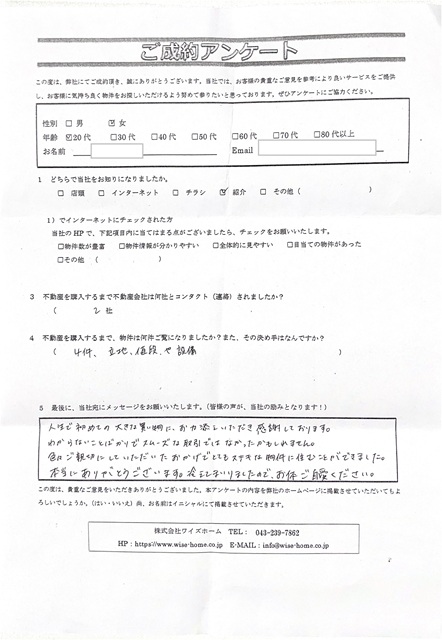 ご成約アンケート
この度は、弊社にてご成約頂き、誠にありがとうございます。当社では、お客様の貴重なご意見を参考により良いサービスをご提供
し、お客様に気持ち良く物件をお探しいただけるよう努めて参りたいと思っております。ぜひアンケートにご協力ください。
性別 □ 男 ☑ 女
年齢 ☑20代 □30代 □40代 □50代 □60代 □70代 □80代以上
お名前 Email
1 どちらで当社をお知りになりましたか。
□ 店頭 □ インターネット □ チラシ ☑ 紹介 □ その他 ( )
1）でインターネットにチェックされた方
当社のHPで、下記項目内に当てはまる点がございましたら、チェックをお願いいたします。
□物件数が豊富 □物件情報が分かりやすい □全体的に見やすい □目当ての物件があった
□その他 ( )
3 不動産を購入するまで不動産会社は何社とコンタクト（連絡）されましたか？
( 2社
4 不動産を購入するまで、物件は何件ご覧になりましたか？また、その決め手はなんですか？
( 4件、立地、値段や設備 )
5 最後に、当社宛にメッセージをお願いいたします。（皆様の声が、当社の励みとなります！）
人生で初めての大きな買い物に、お力添えいただき感謝しております。
わからないことばかりでスムーズな取引ではなかったかもしれません。
ご親切にしていただいたおかげでとてもステキな物件に住むことができました。
本当にありがとうございます。冷えてまいりましたので、お体ご自愛ください。
この度は、貴重なご意見をいただきありがとうございました。本アンケートの内容を弊社のホームページに掲載させていただいてもよ
ろしいでしょうか。（はい・いいえ）尚、お名前はイニシャルにて掲載させていただきます。
株式会社ワイズホーム TEL： 043-239-7862
HP：https://www.wise-home.co.jp E-MAIL：info@wise-home.co.jp